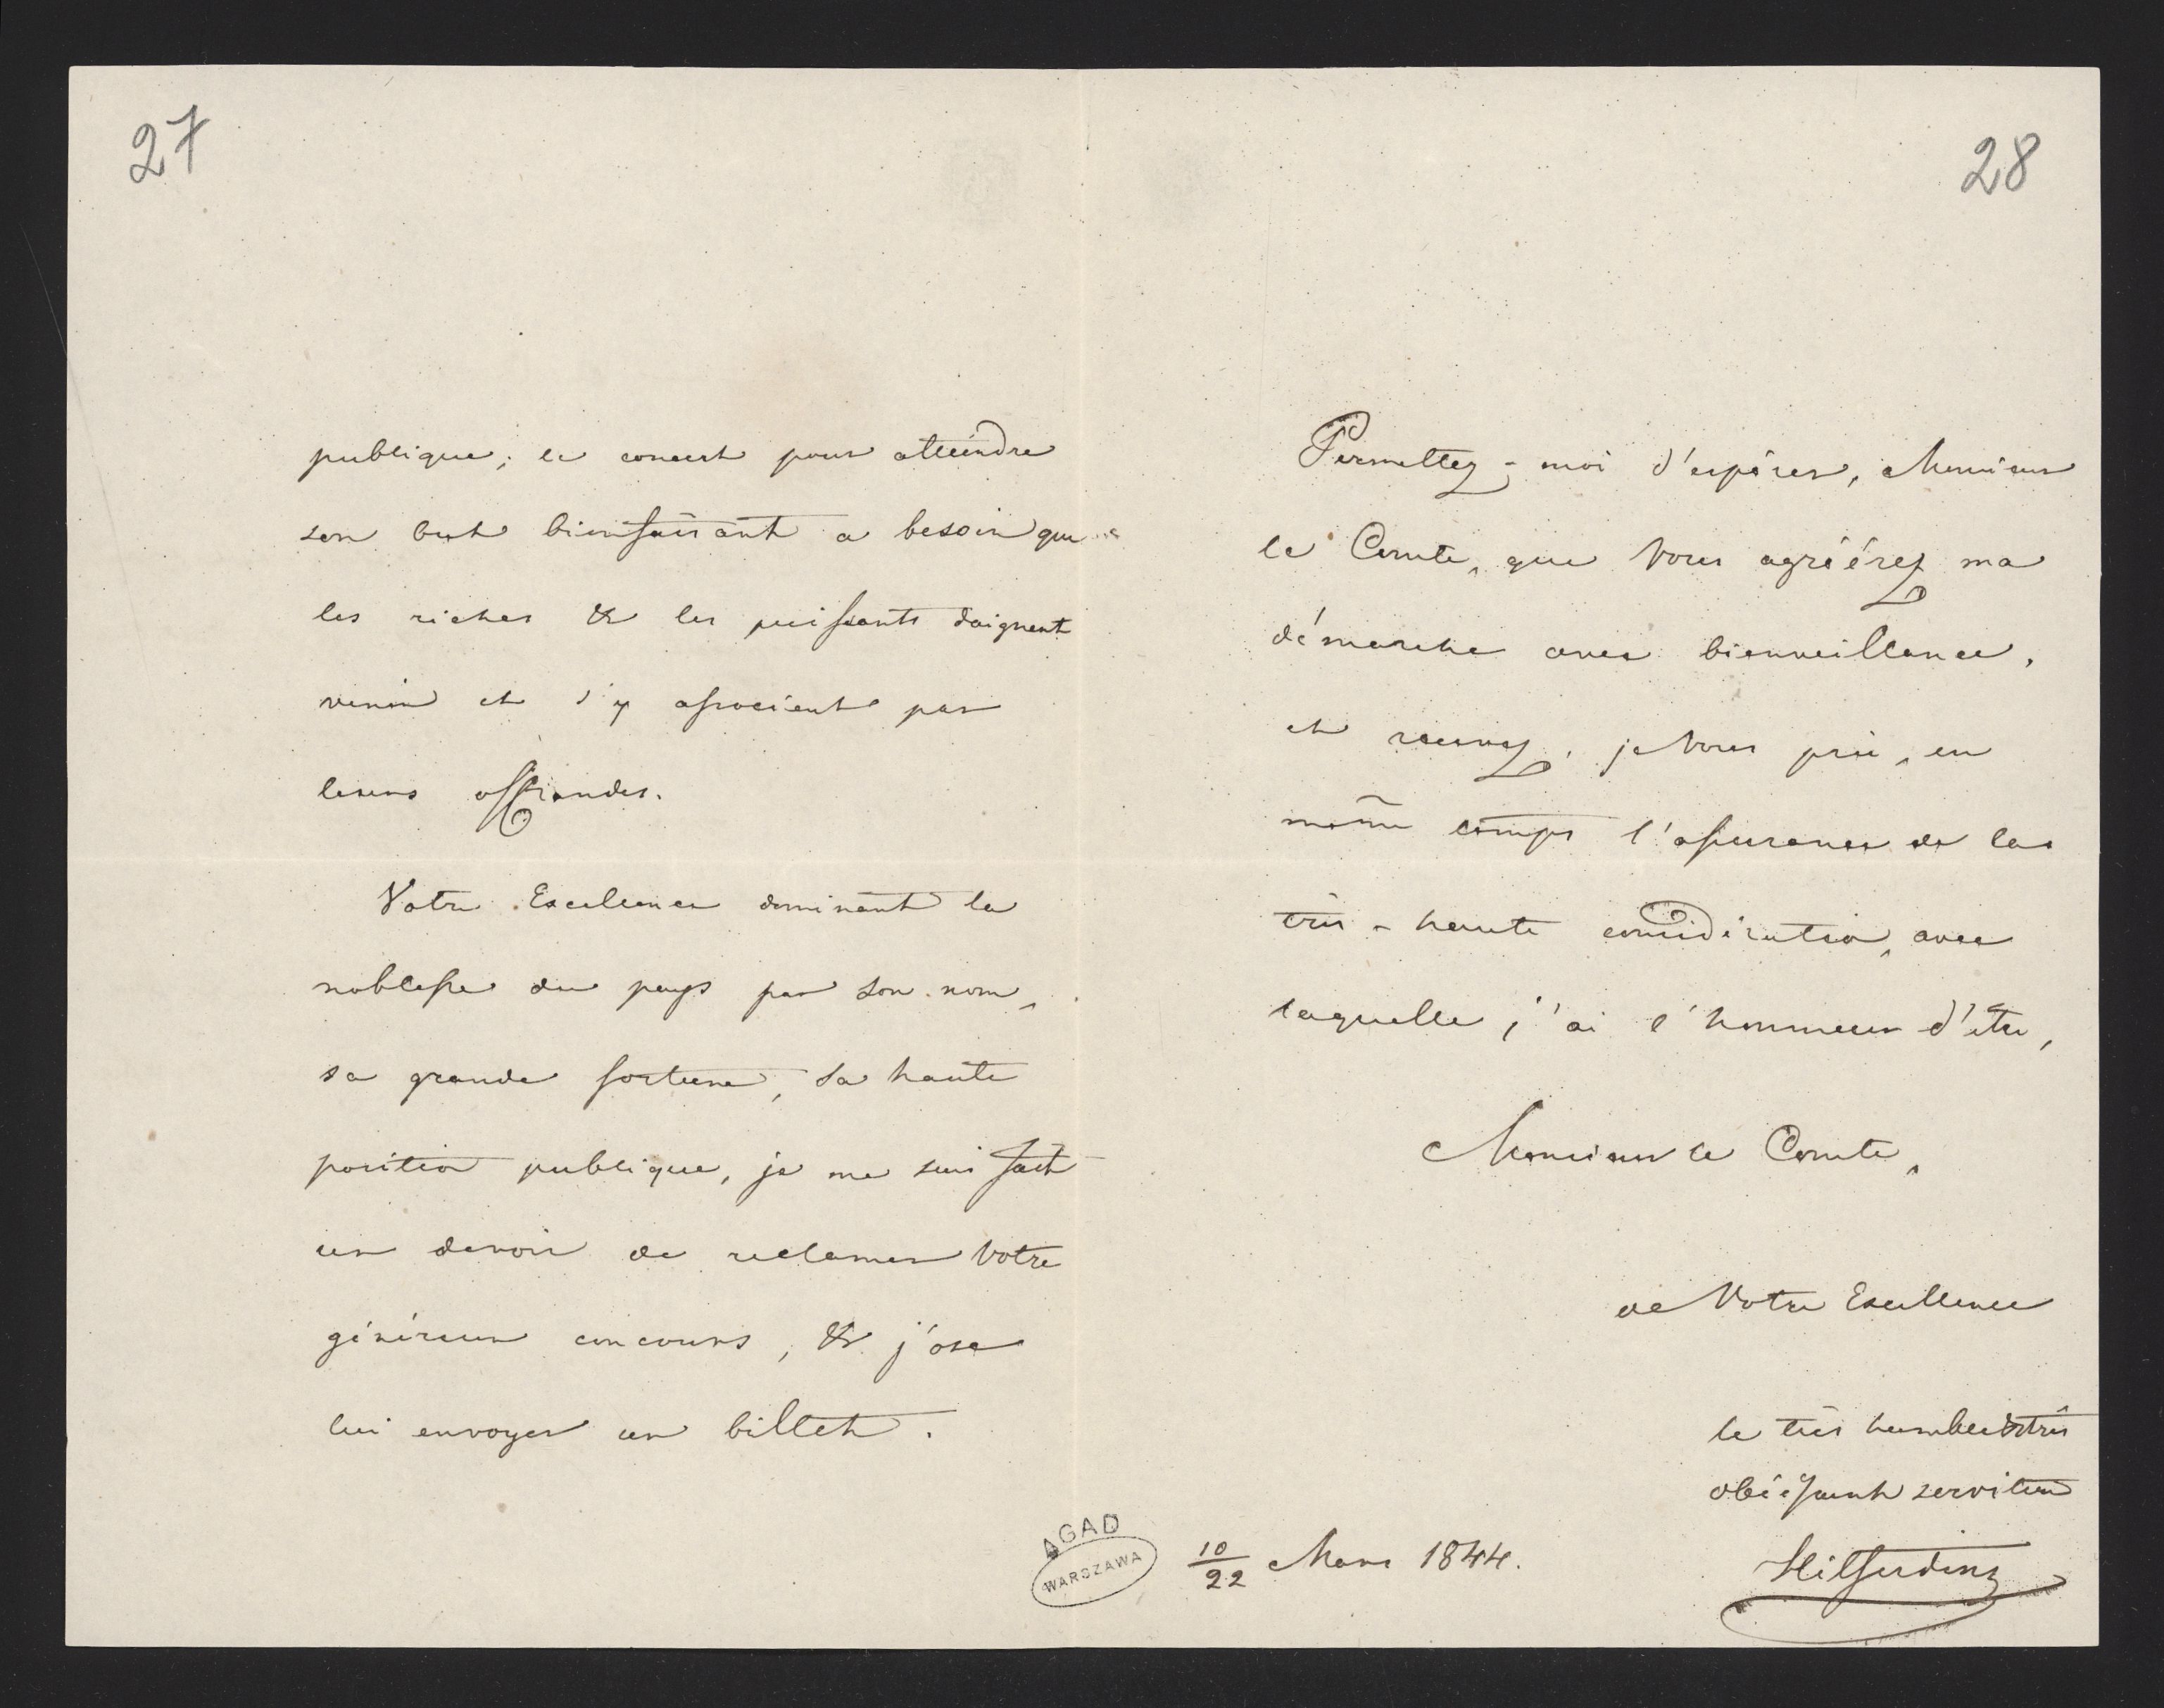 27
publique; le concert pour atteindre
son but bienfaisant a besoin que
les riches & les puissants daignent
venir et s'y associent par
leurs offrandes.
Votre Excellence dominant la
noblesse du pays par son nom,
sa grande fortune, sa haute
position publique, je me suis fait
un devoir de reclamer Votre
généreux concours, & j'ose
lui envoyer un billet.
28
Permettez-moi d'espérer, Monsieur
le Comte, que Vous agréérez ma
démarche avec bienveillance,
et recevez, je Vous prie, en
même temps l'assurance de la
très-haute considération, avec
laquelle j'ai l'honneur d'être,
Monsieur le Comte,
de Votre Excellence
le très humble & très
obéissant serviteur
Hilferding
10/22 Mars 1844.
AGAD
WARSZAWA